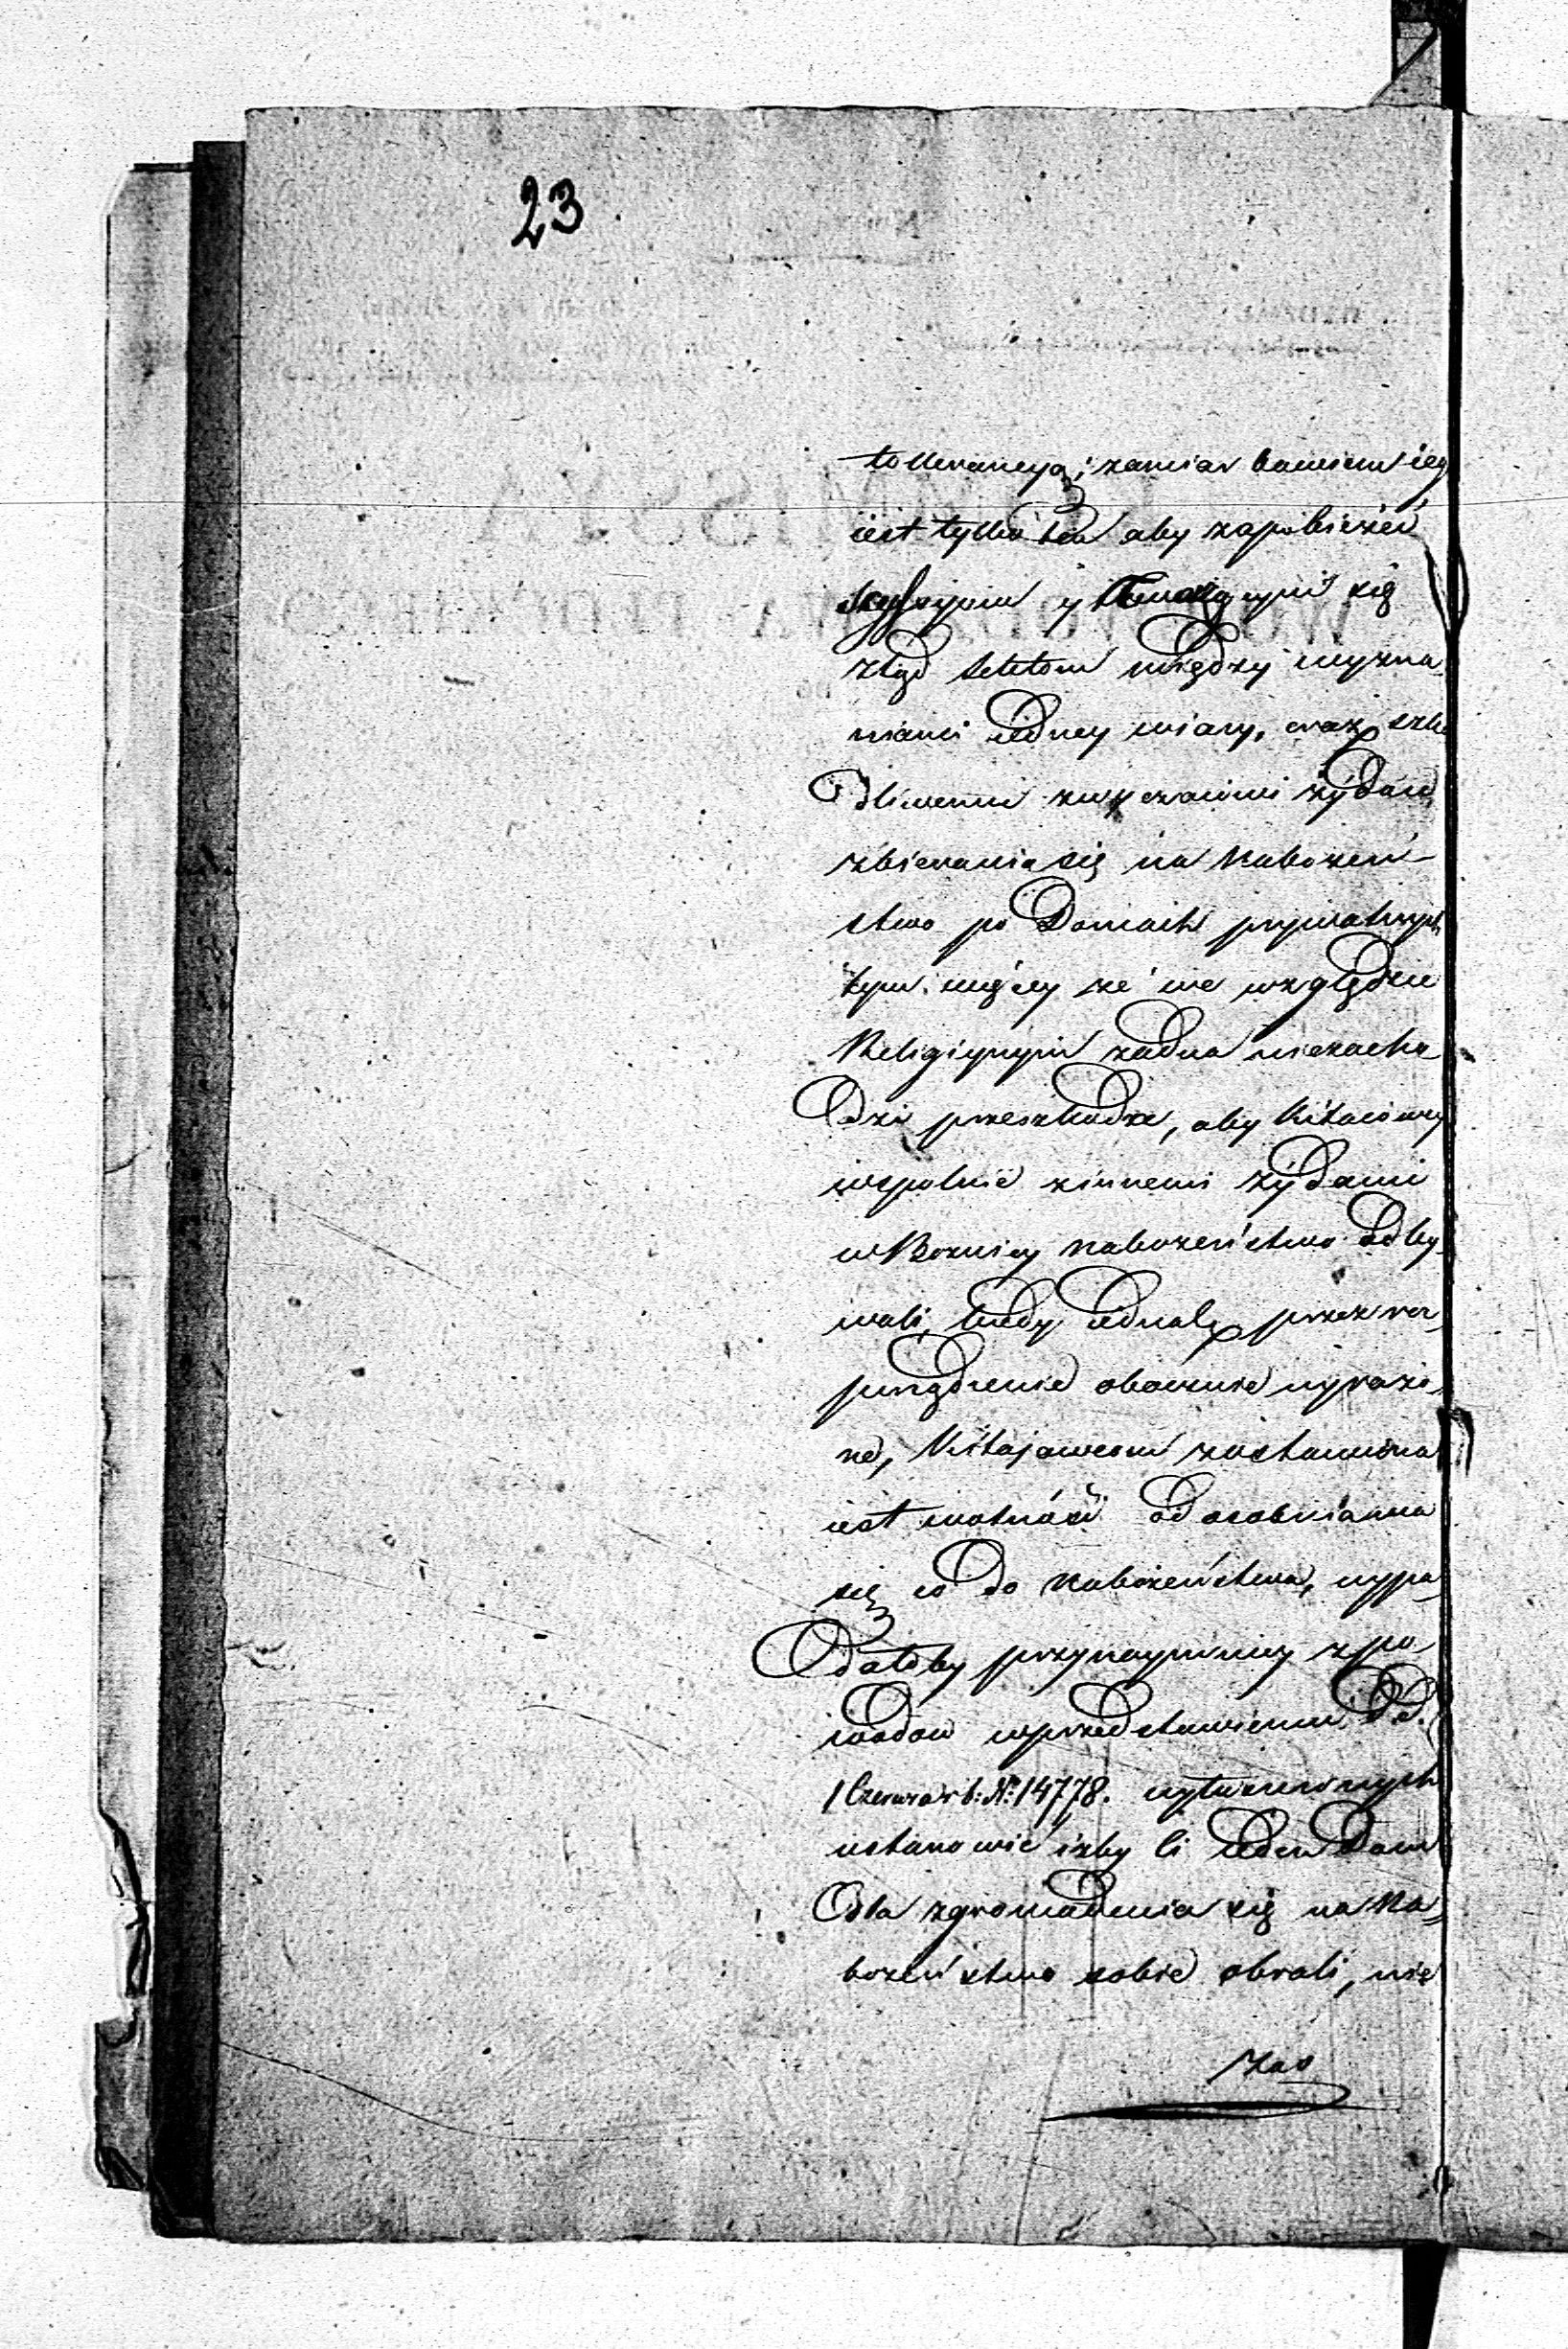 23
tollerancyą; zamiar bowiem ieg
iest tylko ten aby zapobiezeć
scyssyiom y tworzącym się
ztąd sektom między wyzna
niami iedney wiary, oraz szko
dliwemu zwyczaiowi żydow
zbierania się na Nabożeń-
stwo po Domach prywatnych
tym więcey że we względzie
Religiynym żadna niezacho
dzi przeszkoda, aby Kitaiowcy
wspolnie zinnemi żydami
w Boznicy nabożeństwo odby
wali, kiedy iednak przez roz
porządzenie obocznie wyrażo
ne, Kitajowcom zostawiona
iest wolność odosobniania
się co do Nabożeństwa, wypa
dałoby przynaymniey z po
wodow w przedstawieniu D d.
1 Czerwca r b: No: 14778. wyłuszczonych
ustanowić izby li ieden Dom
dla zgromadzenia się na Na
bożeństwo sobie obrali, nie
zaś